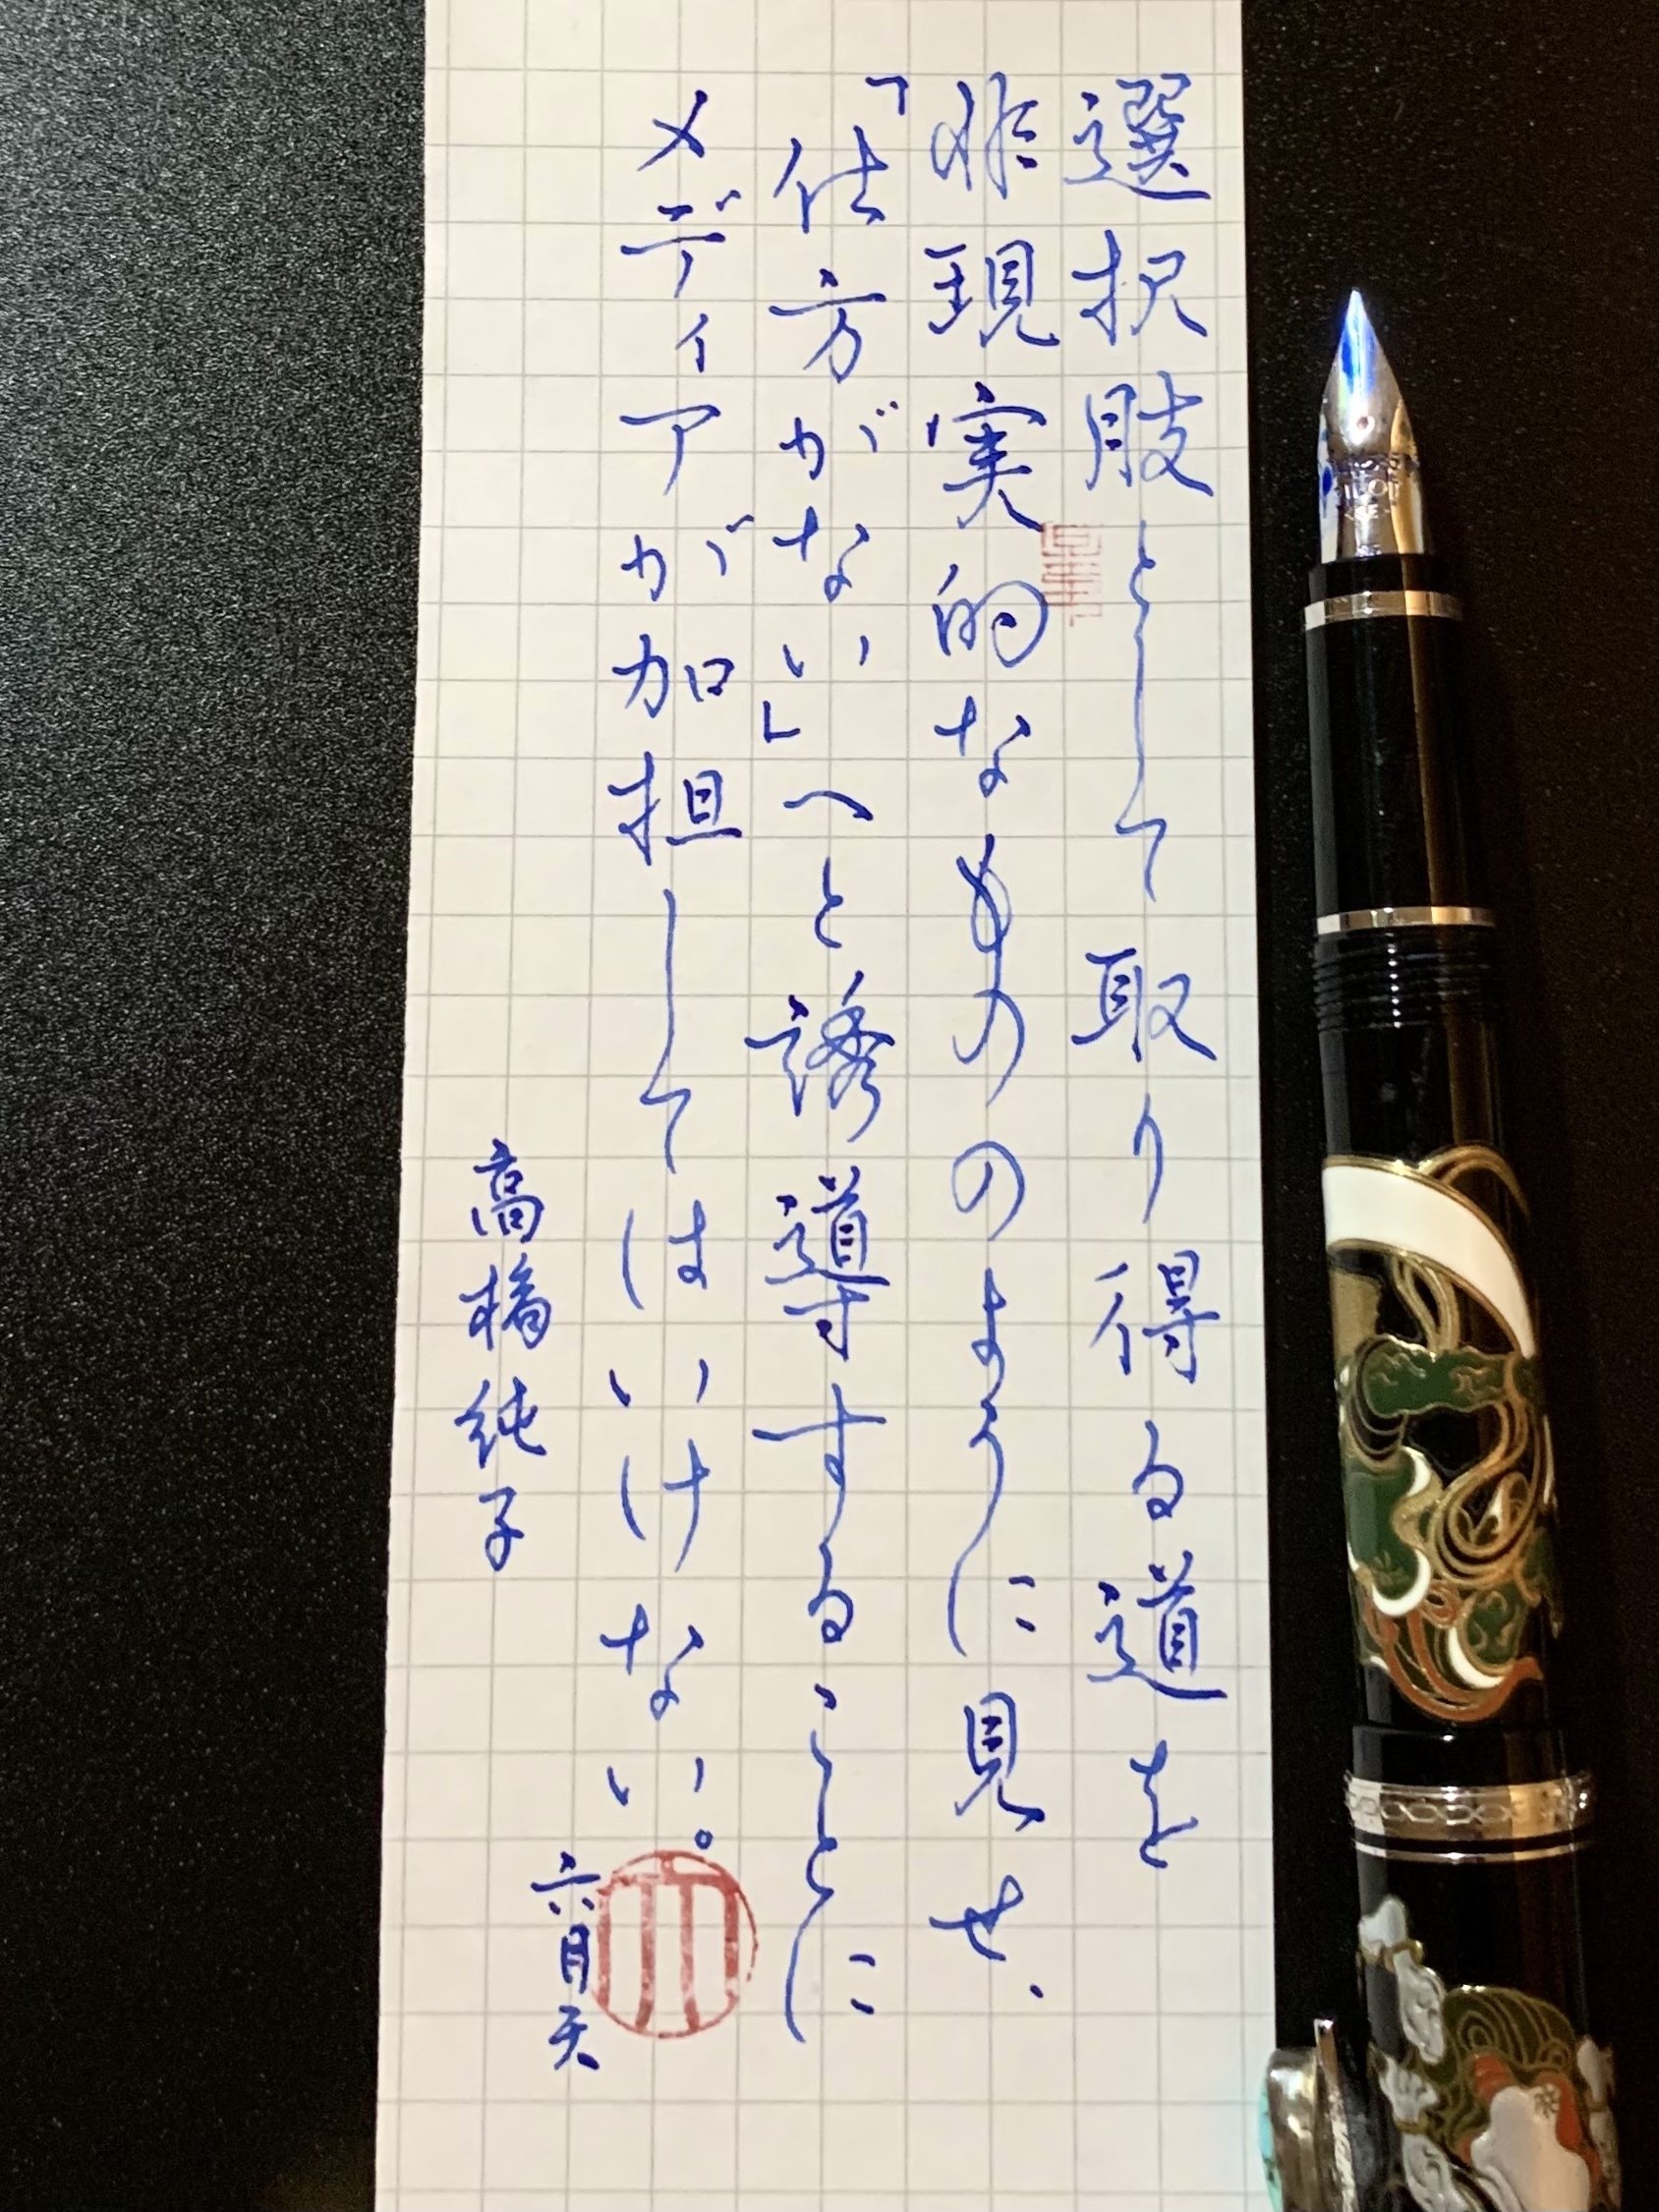 選択肢として取り得る道を
非現実的なもののように見せ、
「仕方がない」へと誘導することに
メディアが加担してはいけない。
高橋純子
六月天
PILOT